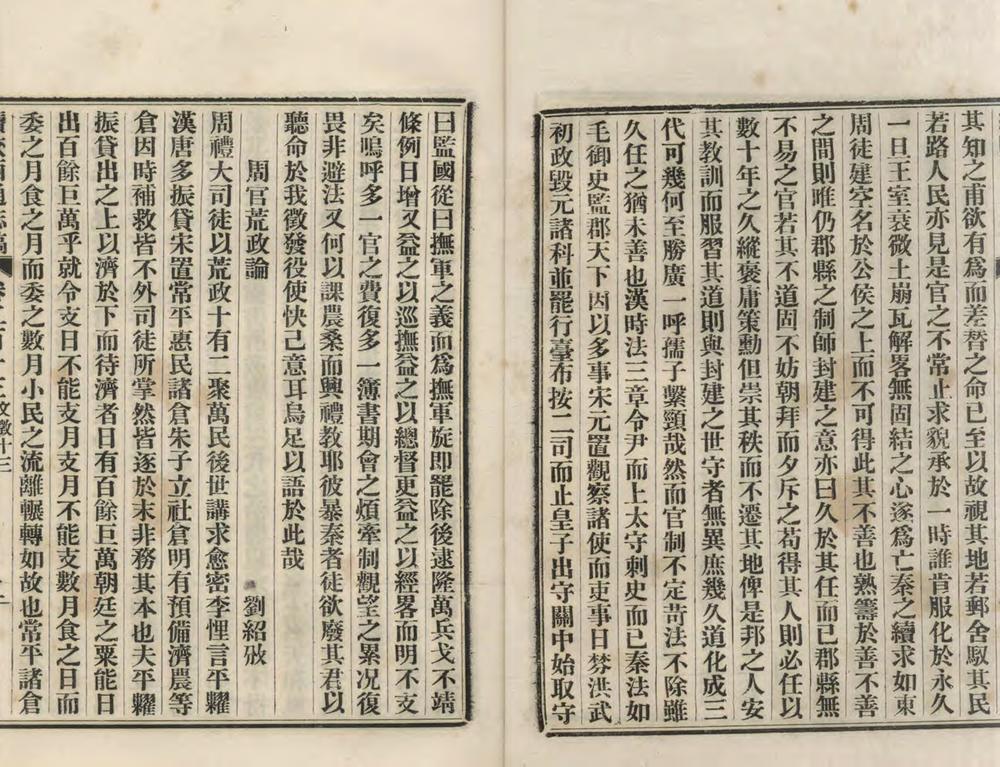 其知之甫欲有為而差替之命已至以故視其地若郵舍馭其民
若路人民亦見是官之不常止求貌承於一時誰肯服化於永久
一旦王室衰微土崩瓦解畧無固結之心遂為亡秦之續求如東
周徒建空名於公侯之上而不可得此其不善也熟籌於善不善
之間則唯仍郡縣之制師封建之意亦曰久於其任而已郡縣無
不易之官若其不道固不妨朝拜而夕斥之苟得其人則必任以
數十年之久縱褒庸策勳但崇其秩而不遷其地俾是邦之人安
其教訓而服習其道則與封建之世守者無異庶幾久道化成三
代可幾何至勝廣一呼孺子繫頸哉然而官制不定苛法不除雖
久任之猶未善也漢時法三章令尹而上太守刺史而已秦法如
毛御史監郡天下因以多事宋元置觀察諸使而吏事日棼洪武
初政毀元諸科並罷行臺布按二司而止皇子出守關中始取守
曰監國從曰撫軍之義而為撫軍旋即罷除後逮隆萬兵戈不靖
條例日增又益之以巡撫益之以總督更益之以經畧而明不支
矣嗚呼多一官之費復多一簿書期會之煩牽制觀望之累況復
畏非避法又何以課農桑而興禮教耶彼暴秦者徒欲廢其君以
聽命於我徵發役使快己意耳烏足以語於此哉
周官荒政論
劉紹攽
周禮大司徒以荒政十有二聚萬民後世講求愈密李悝言平糶
漢唐多振貸宋置常平惠民諸倉朱子立社倉明有預備濟農等
倉因時補救皆不外司徒所掌然皆逐於末非務其本也夫平糶
振貸出之上以濟於下而待濟者日有百餘巨萬朝廷之粟能日
出百餘巨萬乎就令支日不能支月支月不能支數月食之日而
委之月食之月而委之數月小民之流離輾轉如故也常平諸倉